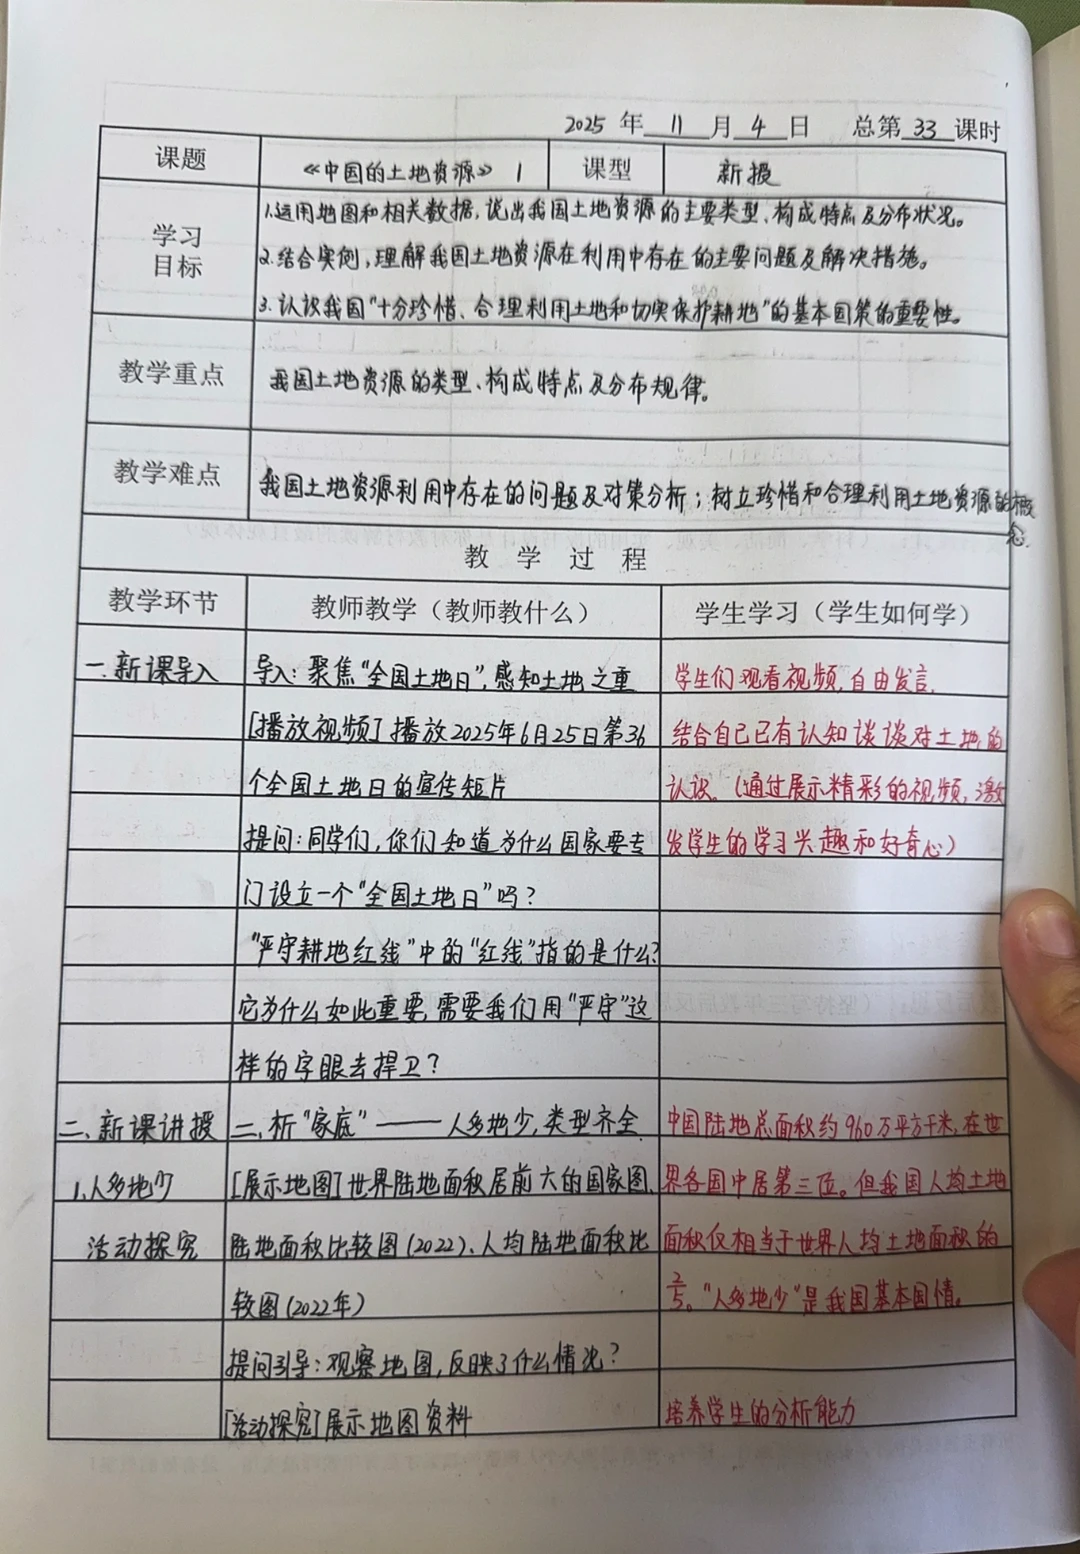 2025 年 11 月 4 日 总第 33 课时
课题 《中国的土地资源》 1 课型 新授
学习目标
1.运用地图和相关数据,说出我国土地资源的主要类型、构成特点及分布状况。
2.结合实例,理解我国土地资源在利用中存在的主要问题及解决措施。
3.认识我国"十分珍惜、合理利用土地和切实保护耕地"的基本国策的重要性。
教学重点 我国土地资源的类型、构成特点及分布规律。
教学难点 我国土地资源利用中存在的问题及对策分析;树立珍惜和合理利用土地资源的概
念.
教 学 过 程
教学环节 教师教学(教师教什么) 学生学习(学生如何学)
一.新课导入 导入:聚焦"全国土地日",感知土地之重 学生们观看视频,自由发言,
[播放视频]播放2025年6月25日第36 结合自己已有认知谈谈对土地的
个全国土地日的宣传短片 认识。(通过展示精彩的视频,激
提问:同学们,你们知道为什么国家要专 发学生的学习兴趣和好奇心)
门设立一个"全国土地日"吗?
"严守耕地红线"中的"红线"指的是什么?
它为什么如此重要,需要我们用"严守"这
样的字眼去捍卫?
二、新课讲授 二、析"家底"——人多地少,类型齐全 中国陆地总面积约960万平方千米,在世
1.人多地少 [展示地图]世界陆地面积居前六的国家图、 界各国中居第三位。但我国人均土地
活动探究 陆地面积比较图(2022)、人均陆地面积比 面积仅相当于世界人均土地面积的
较图(2022年) 2/5。"人多地少"是我国基本国情。
提问引导:观察地图,反映了什么情况?
[活动探究]展示地图资料 培养学生的分析能力